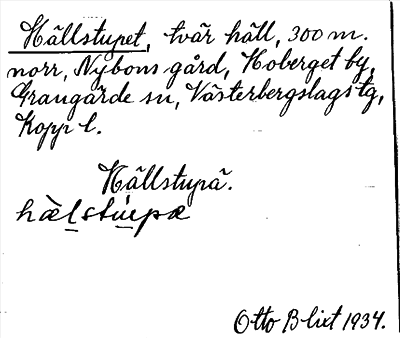 Hällstupet, tvär häll, 300 m.
norr, Nybons gård, Hoberget by,
Grangärde sn, Västerbergslags tg,
Kopp l.
Hällstupä.
hälstu̇pæ
Otto Blixt 1934.